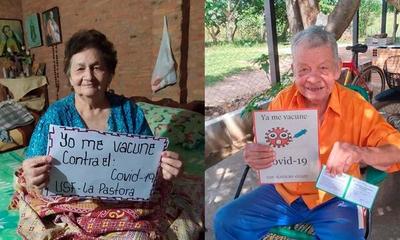 Yo me vacune
Contra el:
Covid-19
USF-La Pastora
Ya me vacune
Covid-19